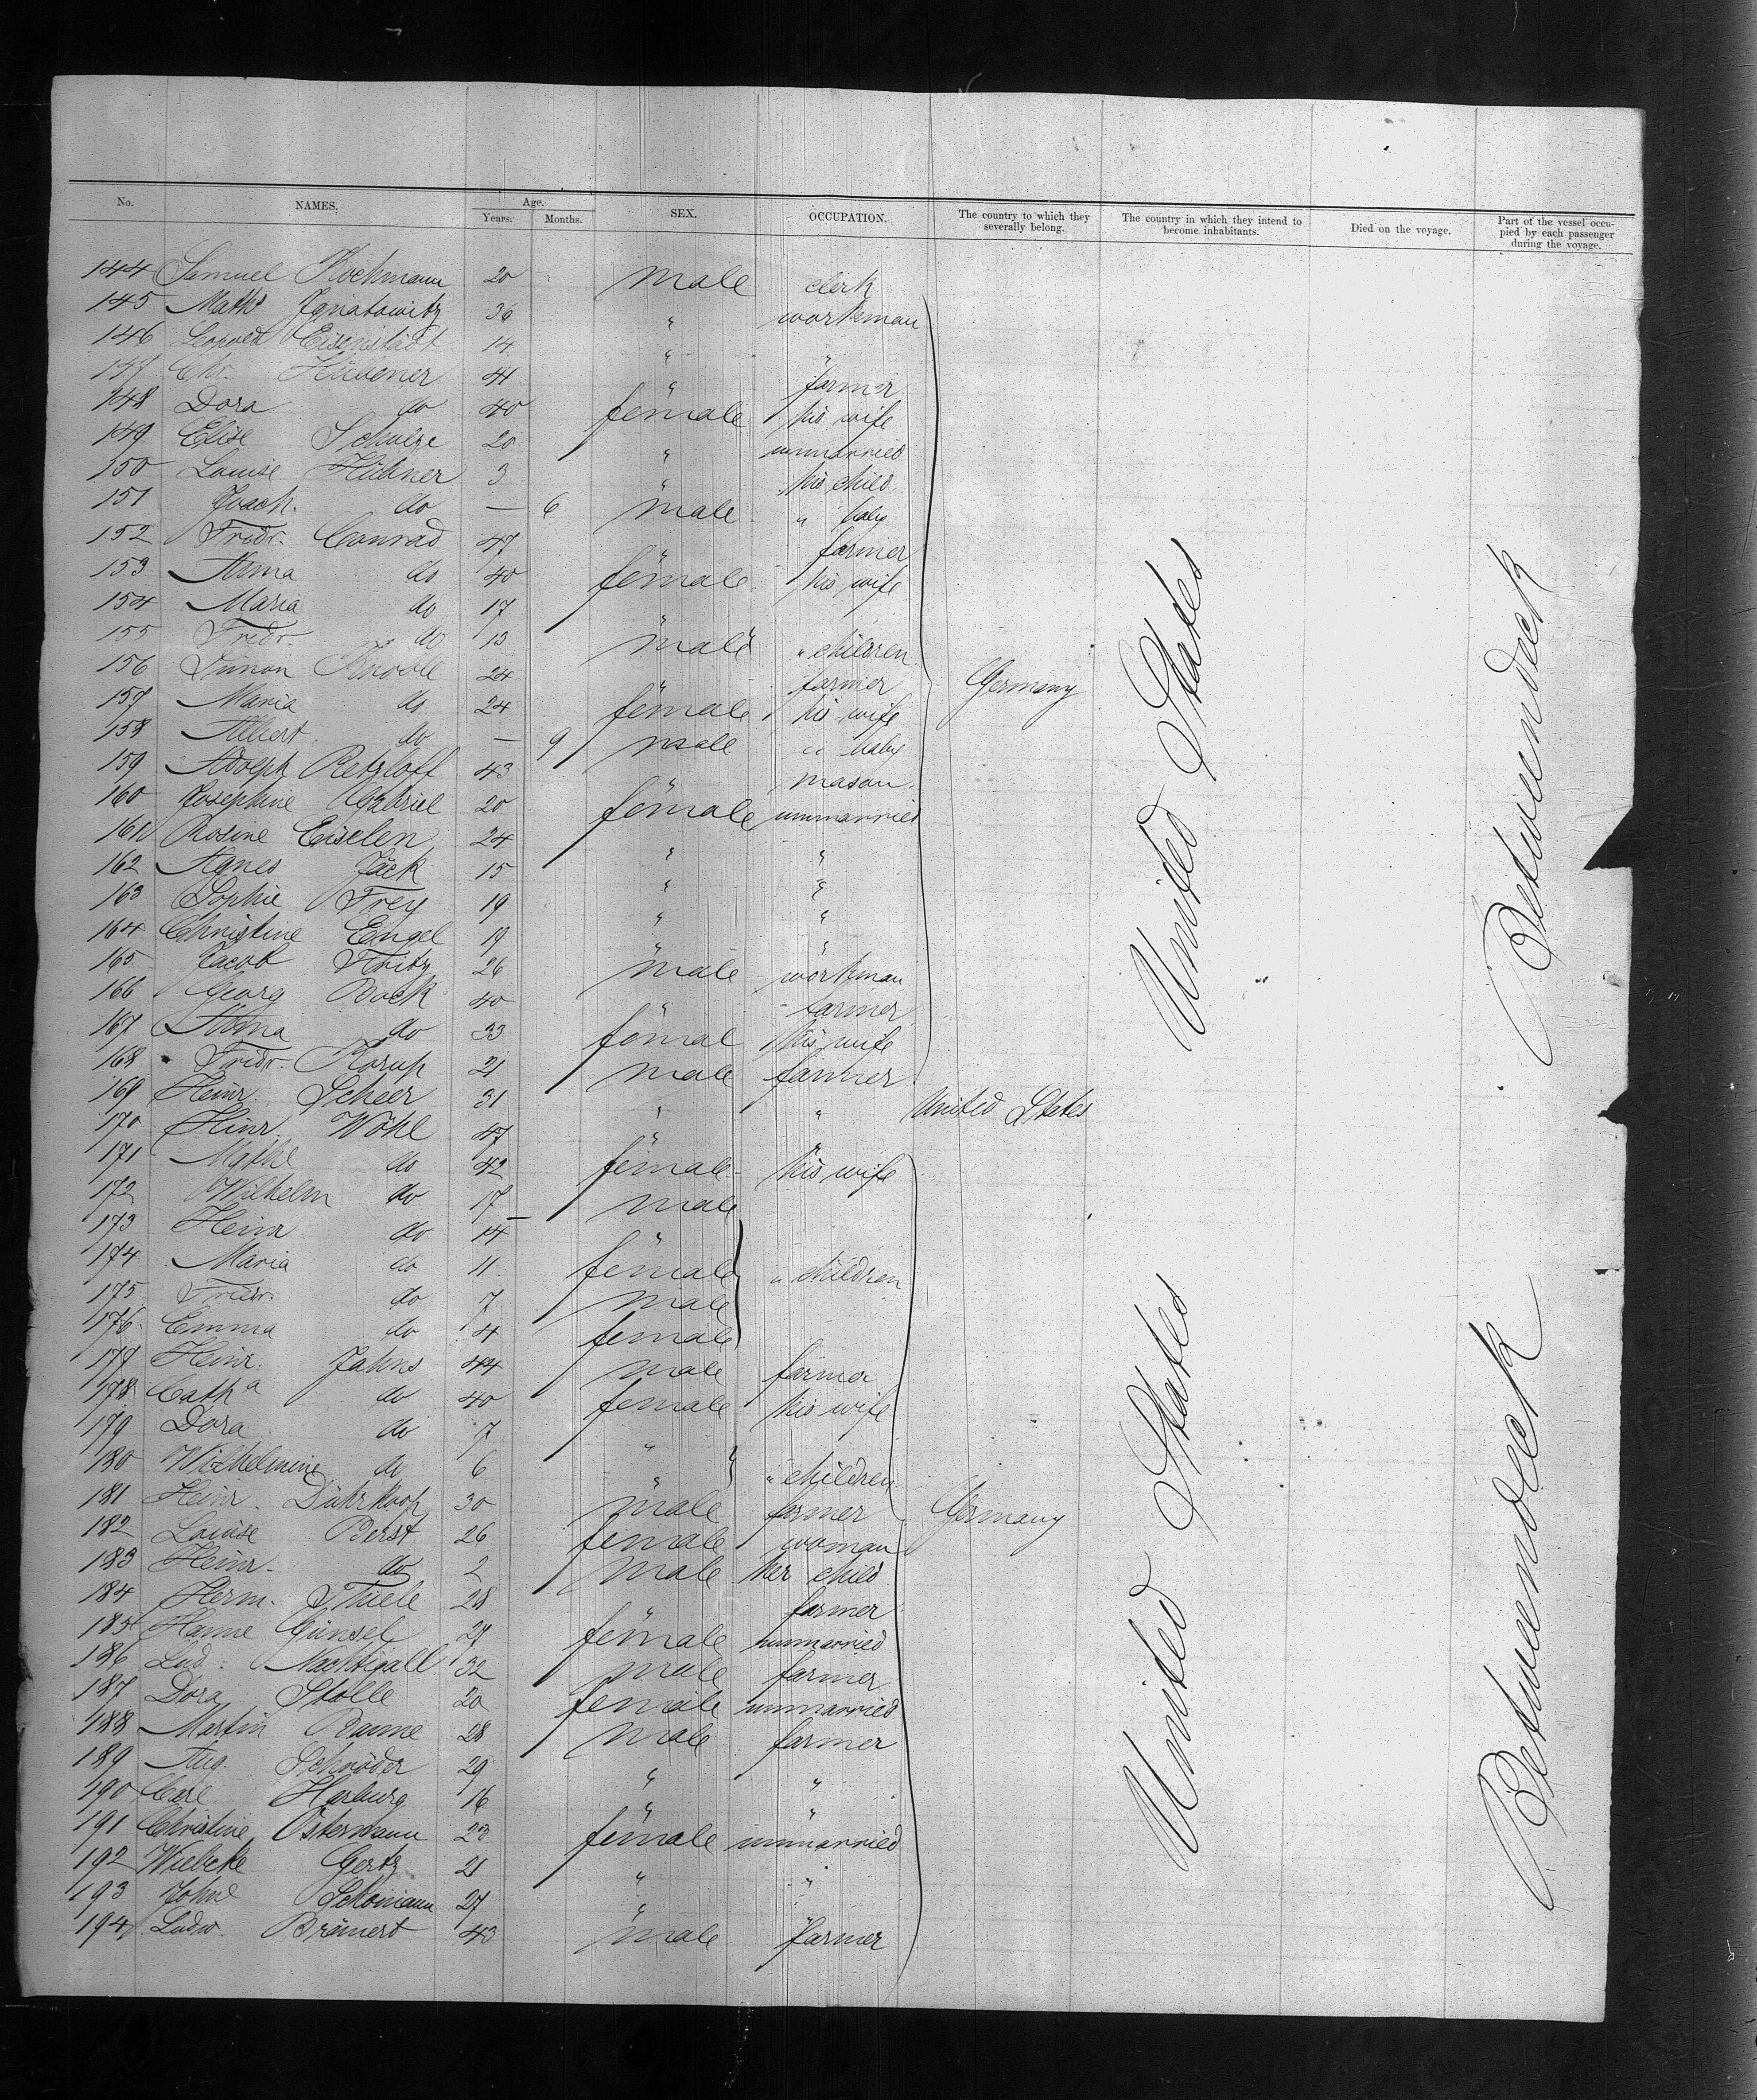 No. NAMES. Age. Years. Months. SEX. OCCUPATION. The country to which they severally belong. The country in which they intend to become inhabitants. Died on the voyage. Part of the vessel occupied by each passenger during the voyage.
144 Samuel Kochmann 20 male clerk
145 Maths Ignatowitz 36 " workman
146 Leopold Eisenstädt 14 " "
147 Chr. Hübener 41 " farmer
148 Dora do 40 female his wife
149 Elise Schulze 20 " unmarried
150 Louise Hübner 3 " his child
151 Joach. do — 6 male " baby
152 Fridr. Conrad 47 " farmer
153 Anna do 40 female his wife
154 Maria do 17 "
155 Fridr. do 13 male " children
156 Simon Knoll 24 " farmer
157 Maria do 24 female his wife Germany United States Betweendeck
158 Albert do — 9 male " baby
159 Adolph Retzloff 43 " mason
160 Josephine Gabriel 20 female unmarried
161 Rosine Eiselen 24 " "
162 Agnes Jäck 15 " "
163 Sophie Frey 19 " "
164 Christine Engel 19 " "
165 Jacob Fritz 26 male workman
166 Georg Bock 40 " farmer
167 Anna do 33 femal his wife
168 Fridr. Korup 21 male farmer
169 Heinr. Scheer 31 " " United States
170 Hinr. Wöhl 47 " "
171 Mathe do 42 female his wife
172 Wilhelm do 17 male
173 Heinr do 14 "
174 Maria do 11 female " children
175 Fridr. do 7 male
176 Emma do 4 female
177 Heinr. Jahns 44 male farmer
178 Catha do 40 female his wife
179 Dora do 7 "
180 Wilhelmine do 6 " " children
181 Heinr. Dührkoop 30 male farmer Germany United States Betweendeck
182 Louise Berst 26 female woman
183 Heinr. do 2 male her child
184 Herm. Thiele 28 " farmer
185 Hanne Günsel 27 female unmarried
186 Lud. Nachtigall 32 male farmer
187 Dora Stolle 20 female unmarried
188 Martin Banne 28 male farmer
189 Aug. Schröder 29 " "
190 Carl Harburg 16 " "
191 Christine Ostermann 23 female unmarried
192 Wiebcke Gertz 21 " "
193 Johne Schömann 27 " "
194 Ludw. Brämert 43 male farmer